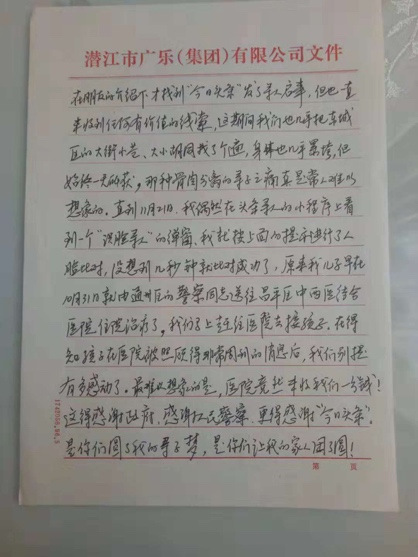 潜江市广乐(集团)有限公司文件
在朋友的介绍下才找到“今日头条”发了寻人启事,但也一直
未收到任何有价值的线索,这期间我们也几乎把东城
区的大街小巷、大小胡同找了个遍,身体也几乎累垮,但
始终一无所获,那种骨肉分离的寻子之痛真是常人难以
想象的。直到11月21日,我偶然在头条寻人的小程序上看
到一个“误脸寻人”的弹窗,我就按上面的提示进行了人
脸比对,没想到几秒钟就比对成功了,原来我儿子早在
10月31日就由通州区的警察同志送往昌平区中西医结合
医院住院治疗了,我们马上赶往医院去接孩子,在得
知孩子在医院被照顾得非常周到的情况后,我们别提
有多感动了。最难以想象的是,医院竟然未收我们一分钱!
这得感谢政府,感谢人民警察,更得感谢“今日头条”,
是你们圆了我的寻子梦,是你们让我的家人团了圆!
第 页